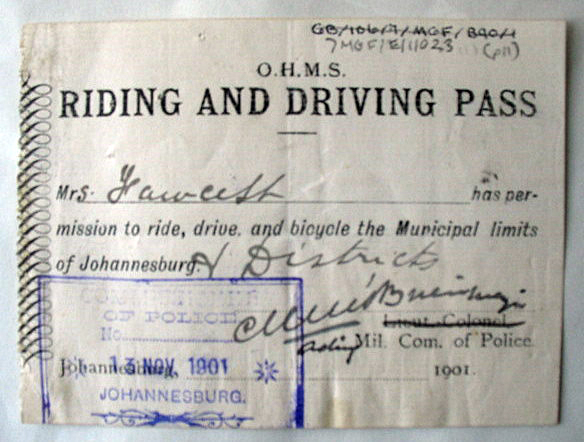 GB/106/7/MGF/BAO/1
7MGF/E/1/023 (p11)
O.H.M.S.
RIDING AND DRIVING PASS
Mrs. Fawcett has per-
mission to ride, drive, and bicycle the Municipal limits
of Johannesburg. & Districts
COMMISSIONER
OF POLICE
No.
Lieut.-Colonel
Acting Mil. Com. of Police
Johannesburg, 13 NOV 1901 1901.
JOHANNESBURG.